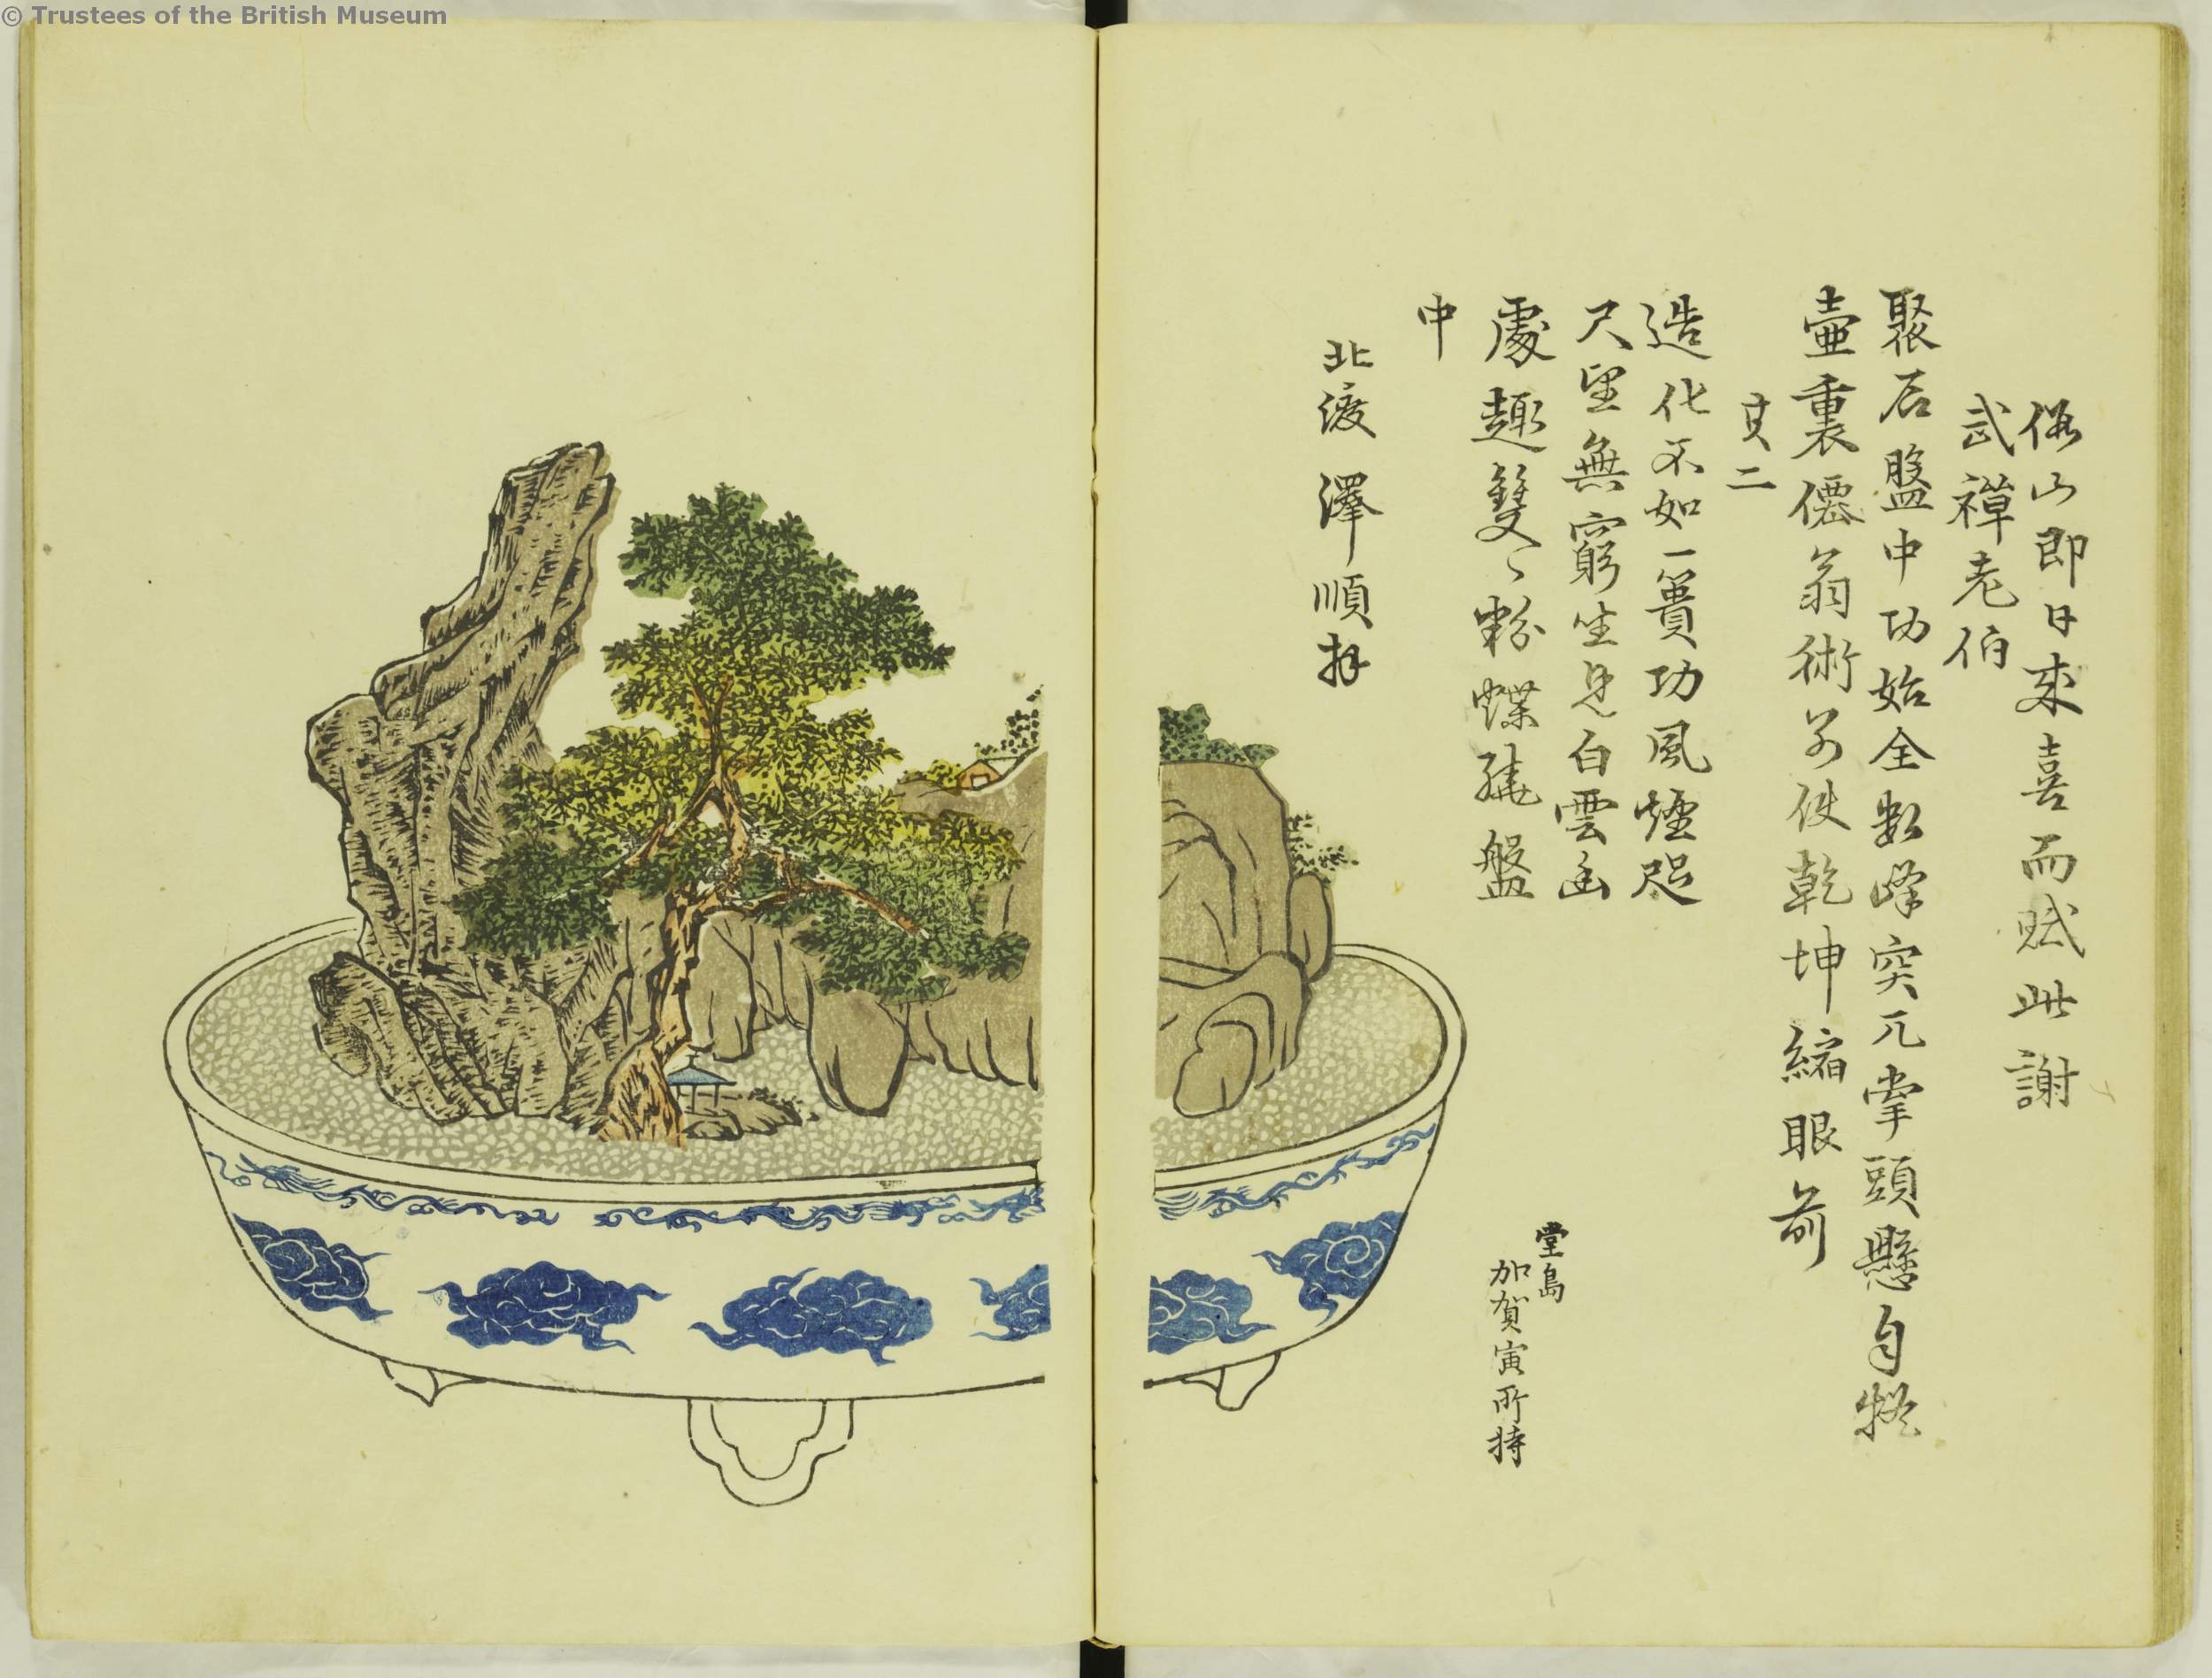 © Trustees of the British Museum
假山即日来喜而賦此謝
武禅老伯
聚石盤中功始全数峰突兀掌頭懸自擬
壷裏僊翁術不使乾坤縮眼前
其二
造化不如一簣功風煙咫
尺望無窮坐見白雲幽
處趣雙〻粉蝶繞盤
中
北渡 澤順拜
堂島
加賀寅所持